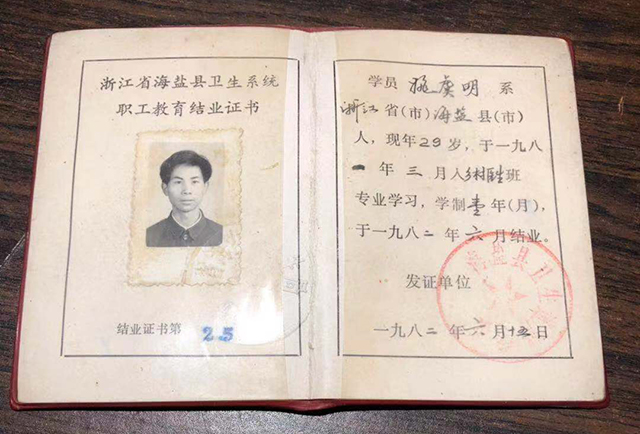 浙江省海盐县卫生系统
职工教育结业证书
结业证书第 25
学员 明 系
浙江省(市)海盐县(市)
人，现年29岁，于一九八
一年三月入 班
专业学习，学制壹年(月)，
于一九八二年六月结业。
发证单位
海盐县卫生
一九八二年六月十五日